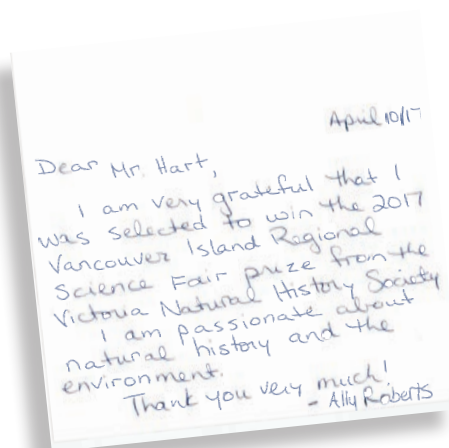 April 10/17
Dear Mr. Hart,
I am very grateful that I
was selected to win the 2017
Vancouver Island Regional
Science Fair prize from the
Victoria Natural History Society
I am passionate about
natural history and the
environment.
Thank you very much!
- Ally Roberts